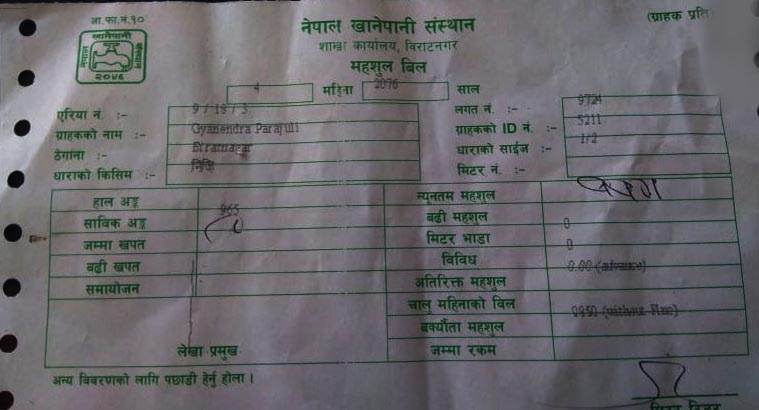 आ.फा.नं.१०
(ग्राहक प्रति
नेपाल खानेपानी संस्थान
शाखा कार्यालय, विराटनगर
महशुल बिल
नेपाल खानेपानी संस्थान २०४६
4 महिना 2076 साल
एरिया नं. :- 9 / 18 / 3
लगत नं. :- 9724
ग्राहकको नाम :- Gyanendra Parajuli
ग्राहकको ID नं. :- 5211
ठेगाना :- Biratnagar
धाराको साईज :- 1/2
धाराको किसिम :- निजि
मिटर नं. :-
हाल अङ्क
न्यूनतम महशुल
साविक अङ्क 965
बढी महशुल 0
जम्मा खपत
मिटर भाडा 0
बढी खपत
विविध 0.00 (advance)
समायोजन
अतिरिक्त महशुल
चालु महिनाको बिल (without Fine)
बक्यौता महशुल
लेखा प्रमुख
जम्मा रकम
अन्य विवरणको लागि पछाडी हेर्नु होला ।